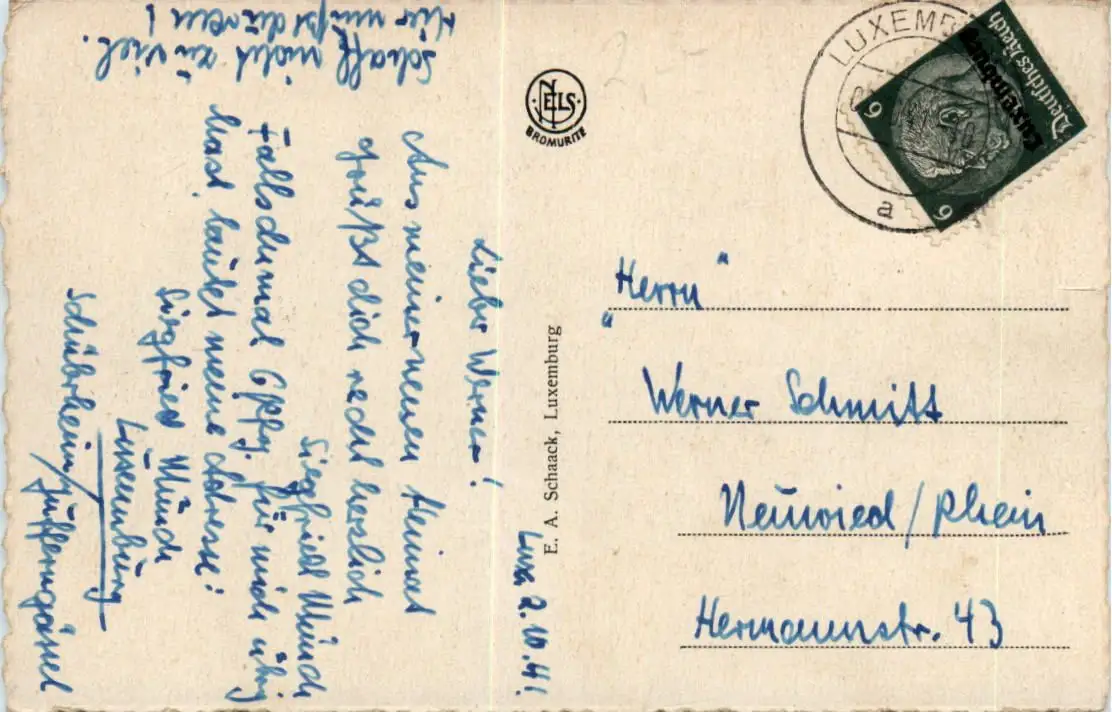 Lux. 2.10.41
Lieber Werner!
Aus meiner neuen Heimat
grüßt dich recht herzlich
Siegfried Münch
Falls du mal 6 Pfg. für mich übrig
hast, lautet meine Adresse:
Siegfried Münch
Luxemburg
Schaff nicht zu viel.
NELS
BROMURITE
E. A. Schaack, Luxemburg
LUXEMB
a
Deutsches Reich
Luxemburg
6
6
"Herrn"
Werner Schmitt
Neuwied / Rhein
Hermannstr. 43